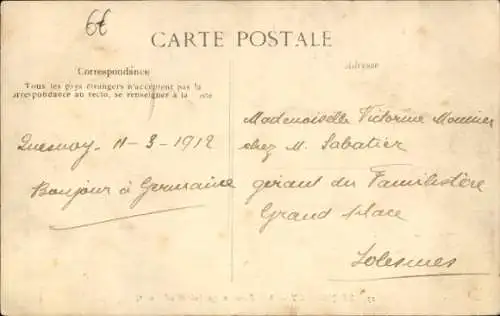 6€
CARTE POSTALE
Correspondance
Tous les pays étrangers n'acceptent pas la
correspondance au recto, se renseigner à la poste
Adresse
Quesnoy. 11-3-1912
Bonjour à Germaine
Mademoiselle Victorine Mounier
chez M. Sabatier
gérant du Familistère
Grand place
Solesmes